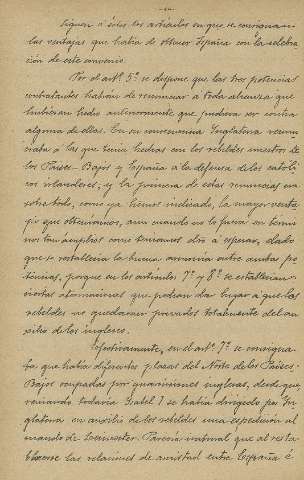 Siguen á éstos los artículos en que se consignan
las ventajas que había de obtener España con la celebra-
ción de este convenio.
Por el artº 5º se dispone que las tres potencias
contratantes habían de renunciar a toda alianza que
hubieran hecho anteriormente que pudiera ser contra
alguna de ellas. En su consecuencia Inglaterra renun-
ciaba a las que tenía hechas con los rebeldes
de los Países-Bajos y España a la defensa de los católi-
cos irlandeses; y la primera de estas renuncias es
sobre todo, como ya hemos indicado, la mayor venta-
ja que obtuvimos, aun cuando no lo fuera en térmi-
nos tan amplios como era de esperar, dado
que se restablecía la buena armonía entre ambas po-
tencias, porque en los artículos 7º y 8º se establecían
ciertas atenuaciones que podían dar lugar a que los
rebeldes no quedaran privados totalmente del au-
xilio de los ingleses.
Efectivamente, en el artº 7º se consigna-
ba que había diferentes plazas del Norte de los Países-
Bajos ocupadas por guarniciones inglesas, desde que
reinando todavía Isabel I se había dirigido por In-
glaterra en auxilio de los rebeldes una expedición al
mando de Leicester. Parecía natural que al resta-
blecerse las relaciones de amistad entre España é